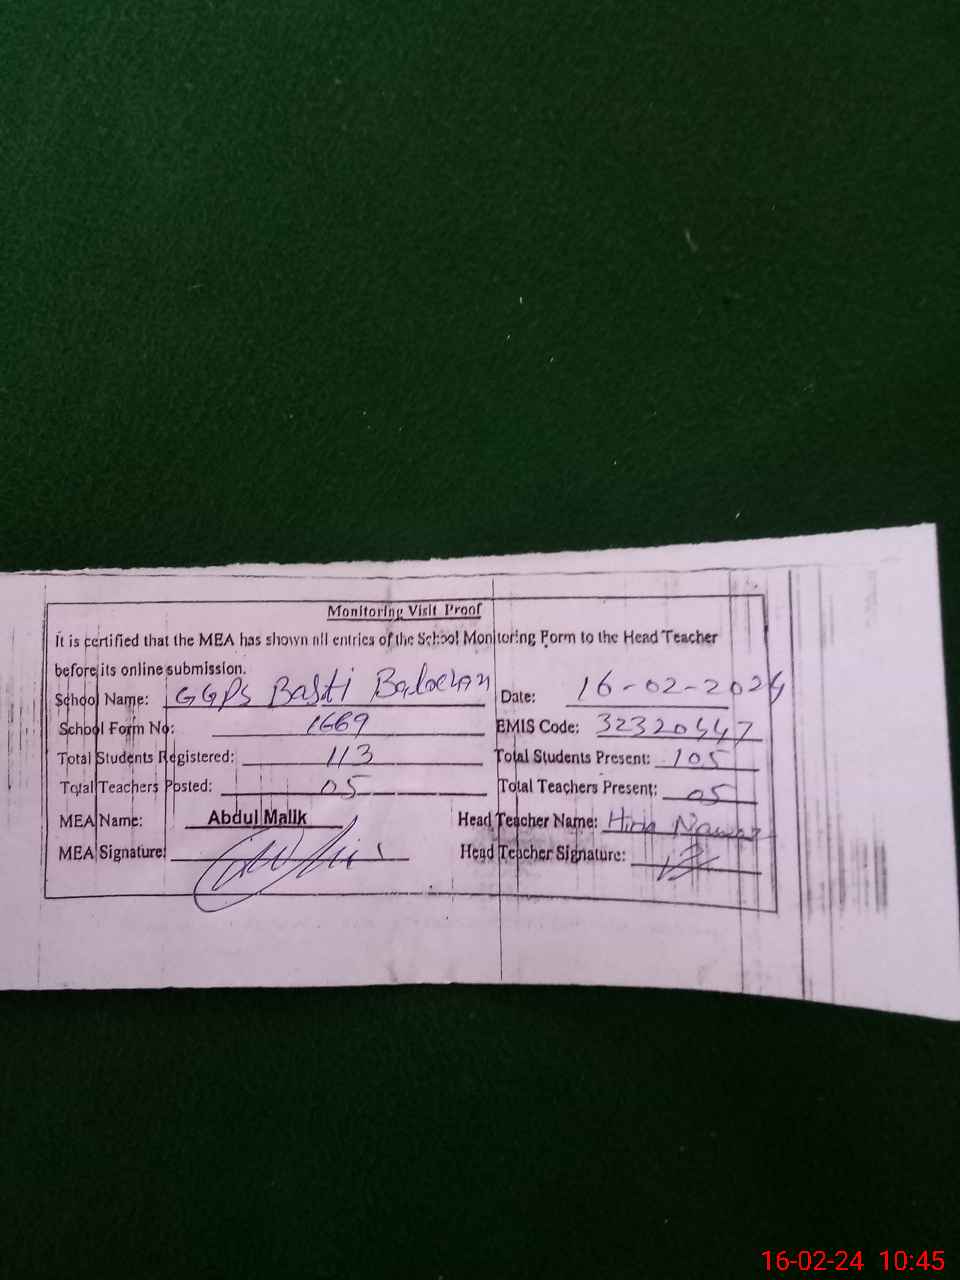 Monitoring Visit Proof
It is certified that the MEA has shown all entries of the School Monitoring Form to the Head Teacher
before its online submission.
School Name: GGPS Basti Date: 16-02-2024
School Form No: 1669 EMIS Code: 32320447
Total Students Registered: 113 Total Students Present: 105
Total Teachers Posted: 05 Total Teachers Present: 05
MEA Name: Abdul Malik Head Teacher Name: Hira Nawaz
MEA Signature: Head Teacher Signature:
16-02-24 10:45